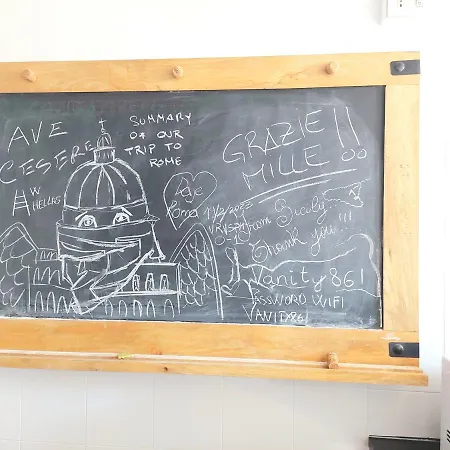 AVE
CESERE
W
HELLAS
SUMMARY
OF OUR
TRIP TO
ROME
GRAZIE
MILLE !!
Roma 11/2/2023
from Sicily
Thank you !!!
Vanity861
PASSWORD WIFI
VANITY861